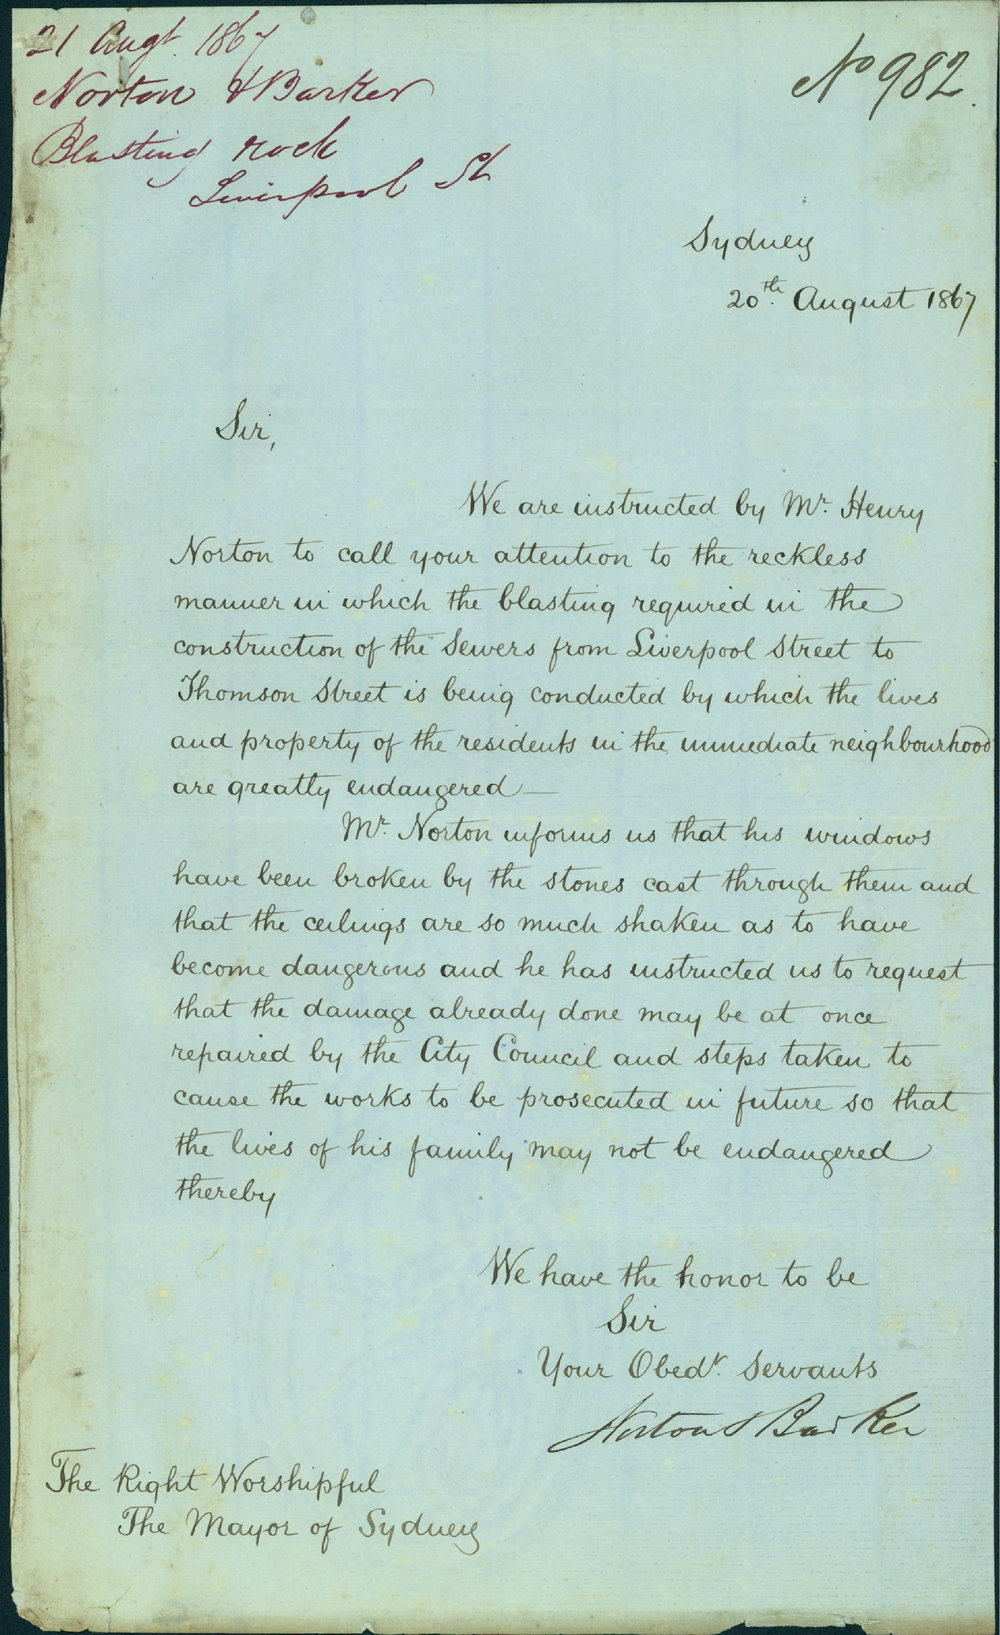 21 Augt. 1867
Norton & Barker
Blasting rock
Liverpool St
No 982.
Sydney
20th. August 1867
Sir,
We are instructed by Mr. Henry
Norton to call your attention to the reckless
manner in which the blasting required in the
construction of the Sewers from Liverpool Street to
Thomson Street is being conducted by which the lives
and property of the residents in the immediate neighbourhood
are greatly endangered —
Mr. Norton informs us that his windows
have been broken by the stones cast through them and
that the ceilings are so much shaken as to have
become dangerous and he has instructed us to request
that the damage already done may be at once
repaired by the City Council and steps taken to
cause the works to be prosecuted in future so that
the lives of his family may not be endangered
thereby
We have the honor to be
Sir
Your Obedt. Servants
Norton & Barker
The Right Worshipful
The Mayor of Sydney